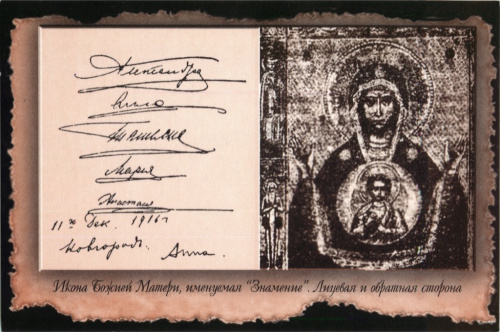 Александра
Ольга
Татiана
Марiя
Анастасiя
11го Дек. 1916 г
Новгородъ. Анна.
Икона Божией Матери, именуемая "Знамение". Лицевая и обратная сторона